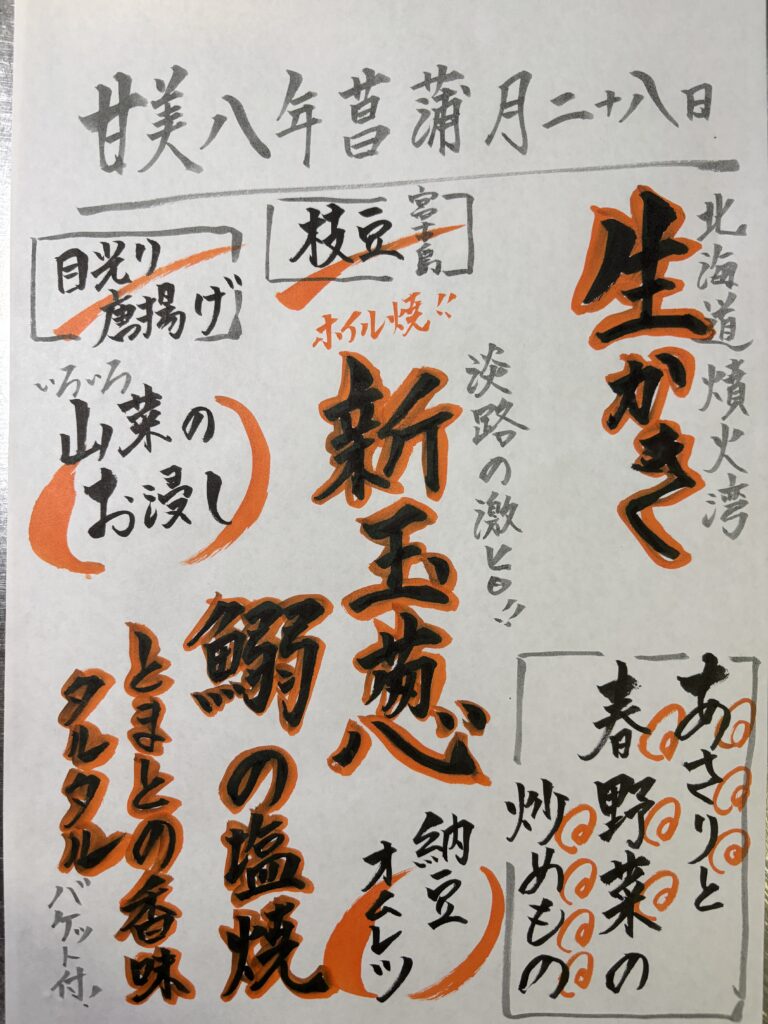 甘美八年菖蒲月二十八日
北海道噴火湾
生かきく
あさりと
春野菜の
炒めもの
淡路の激ヒロ!!
ホイル焼!!
新玉葱
納豆
オムレツ
宮古島
枝豆
鰯の塩焼
目光り
唐揚げ
いろいろ
山菜の
お浸し
とまとの香味
タルタル
バケット付!